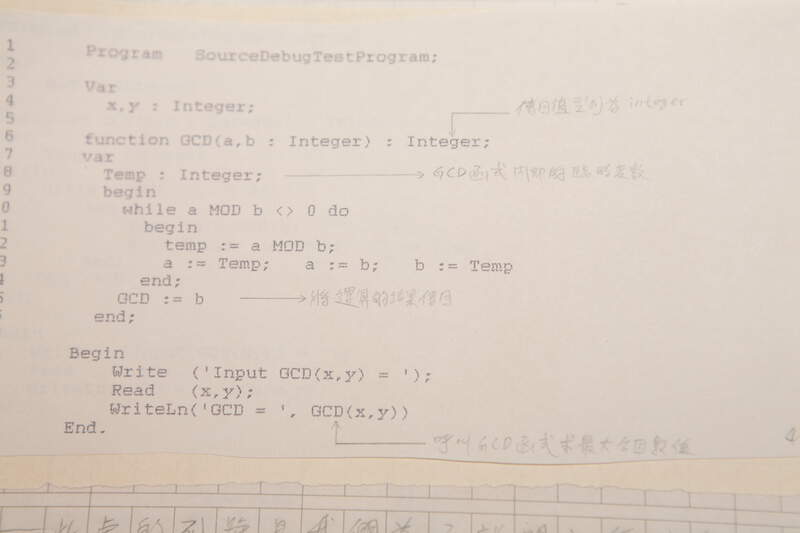 1 Program SourceDebugTestProgram;
2
3 Var
4 x,y : Integer;
傳回值型別為 integer
5
6 function GCD(a,b : Integer) : Integer;
7 var
8 Temp : Integer; GCD函式內部的臨時變數
9 begin
0 while a MOD b <> 0 do
1 begin
2 temp := a MOD b;
3 a := Temp; a := b; b := Temp
4 end;
5 GCD := b 將運算的結果傳回
end;
Begin
Write ('Input GCD(x,y) = ');
Read (x,y);
WriteLn('GCD = ', GCD(x,y))
End.
呼叫GCD函式求最大公因數值
4